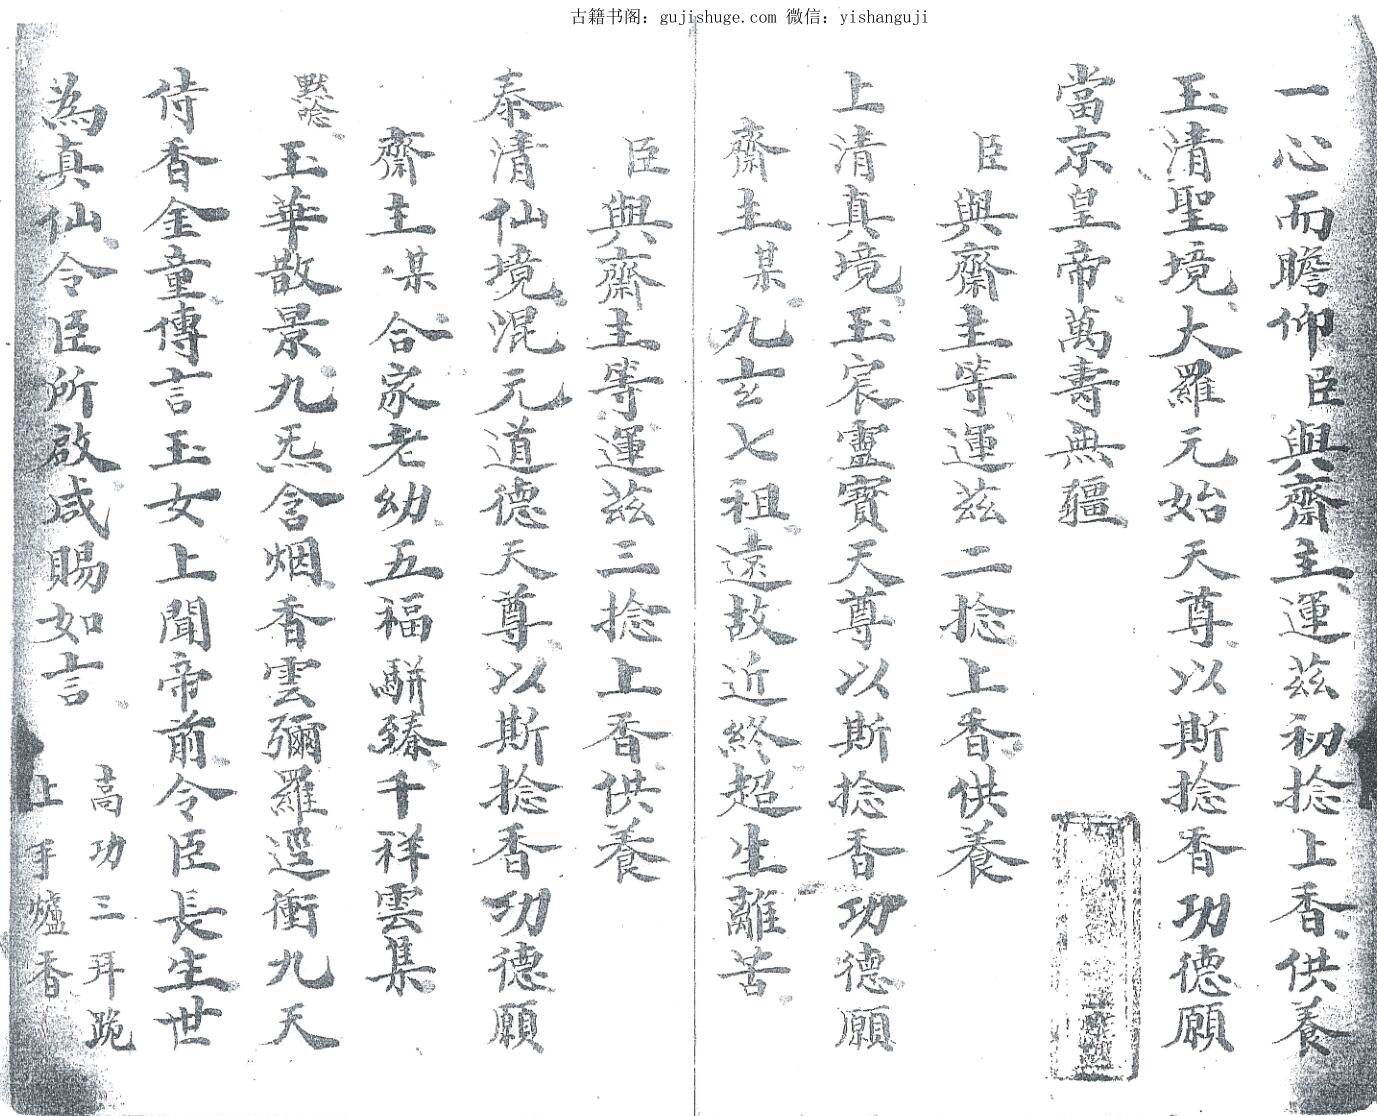 古籍书阁：gujishuge.com 微信：yishanguji
一心而瞻仰臣與齋主運茲初捻上香供養
玉清聖境大羅元始天尊以斯捻香功德願
當京皇帝萬壽無疆
臣與齋主等運茲二捻上香供養
上清真境玉宸靈寶天尊以斯捻香功德願
齋主某九玄七祖遠故近終超生離苦
臣與齋主等運茲三捻上香供養
泰清仙境混元道德天尊以斯捻香功德願
齋主某合家老幼五福駢臻千祥雲集
默念玉華散景九炁含烟香雲彌羅逕衝九天
侍香金童傳言玉女上聞帝前令臣長生世
為真仙令臣所啟咸賜如言
高功三拜跪
上手爐香